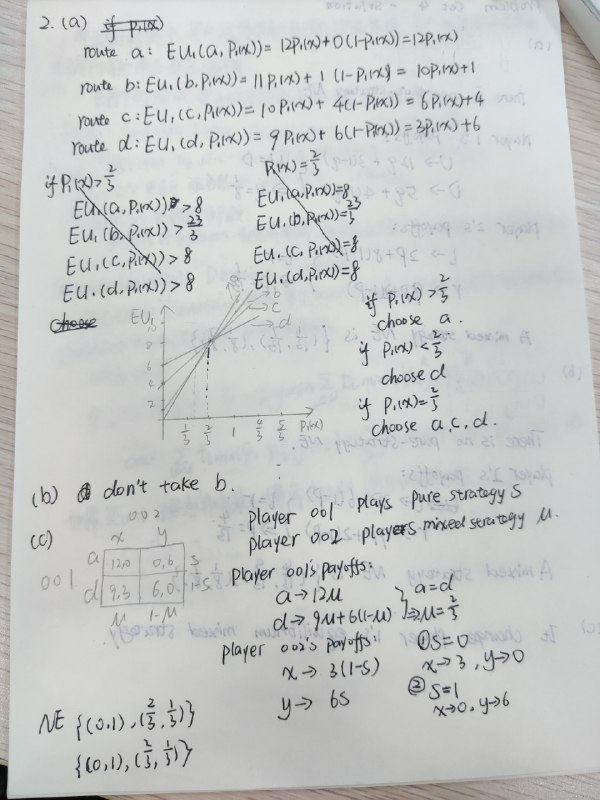 2. (a) if p₁(x)
route a: EU₁(a, P₁(x)) = 12P₁(x)+0(1-P₁(x))=12P₁(x)
route b: EU₁(b, P₁(x)) = 11P₁(x)+1(1-P₁(x)) = 10P₁(x)+1
route c: EU₁(c, P₁(x)) = 10P₁(x)+4(1-P₁(x)) = 6P₁(x)+4
route d: EU₁(d, P₁(x)) = 9P₁(x)+6(1-P₁(x)) = 3P₁(x)+6
if P₁(x) > 2/3
EU₁(a, P₁(x)) > 8
EU₁(b, P₁(x)) > 23/3
EU₁(c, P₁(x)) > 8
EU₁(d, P₁(x)) > 8
choose
P₁(x) = 2/3
EU₁(a, P₁(x)) = 8
EU₁(b, P₁(x)) = 23/3
EU₁(c, P₁(x)) = 8
EU₁(d, P₁(x)) = 8
EU₁
10
8
6
4
2
a
b
c
d
1/3 2/3 1 4/3 5/3 P₁(x)
if P₁(x) > 2/3
choose a.
if P₁(x) < 2/3
choose d
if P₁(x) = 2/3
choose a, c, d.
(b) don't take b.
(c)
002
x y
001
a 12,0 0,6 s
d 9,3 6,0 1-s
μ 1-μ
player 001 plays pure strategy S
player 002 players mixed strategy μ.
player 001's payoffs:
a → 12μ
d → 9μ+6(1-μ)
} a = d
⇒ μ = 2/3
player 002's payoffs:
x → 3(1-s)
y → 6s
① S=0
x→3, y→0
② S=1
x→0, y→6
NE {(0,1), (2/3, 1/3)}
{(0,1), (2/3, 1/3)}